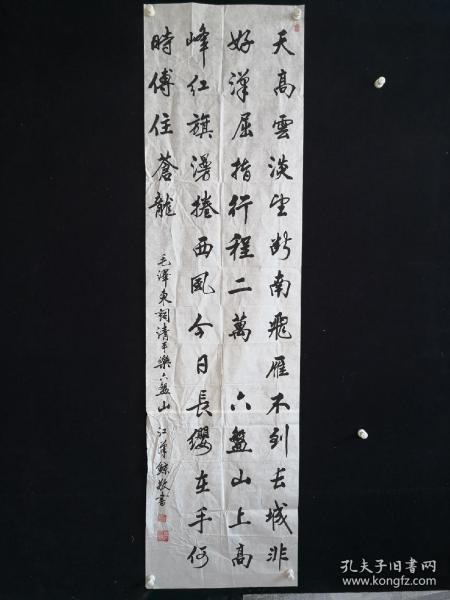 天高雲淡望断南飛雁不到长城非
好漢屈指行程二萬 六盤山上高
峰红旗漫捲西風今日長纓在手何
時傅住蒼龍
毛澤東詞清平樂六盤山 江 敬書
孔夫子旧书网
www.kongfz.com